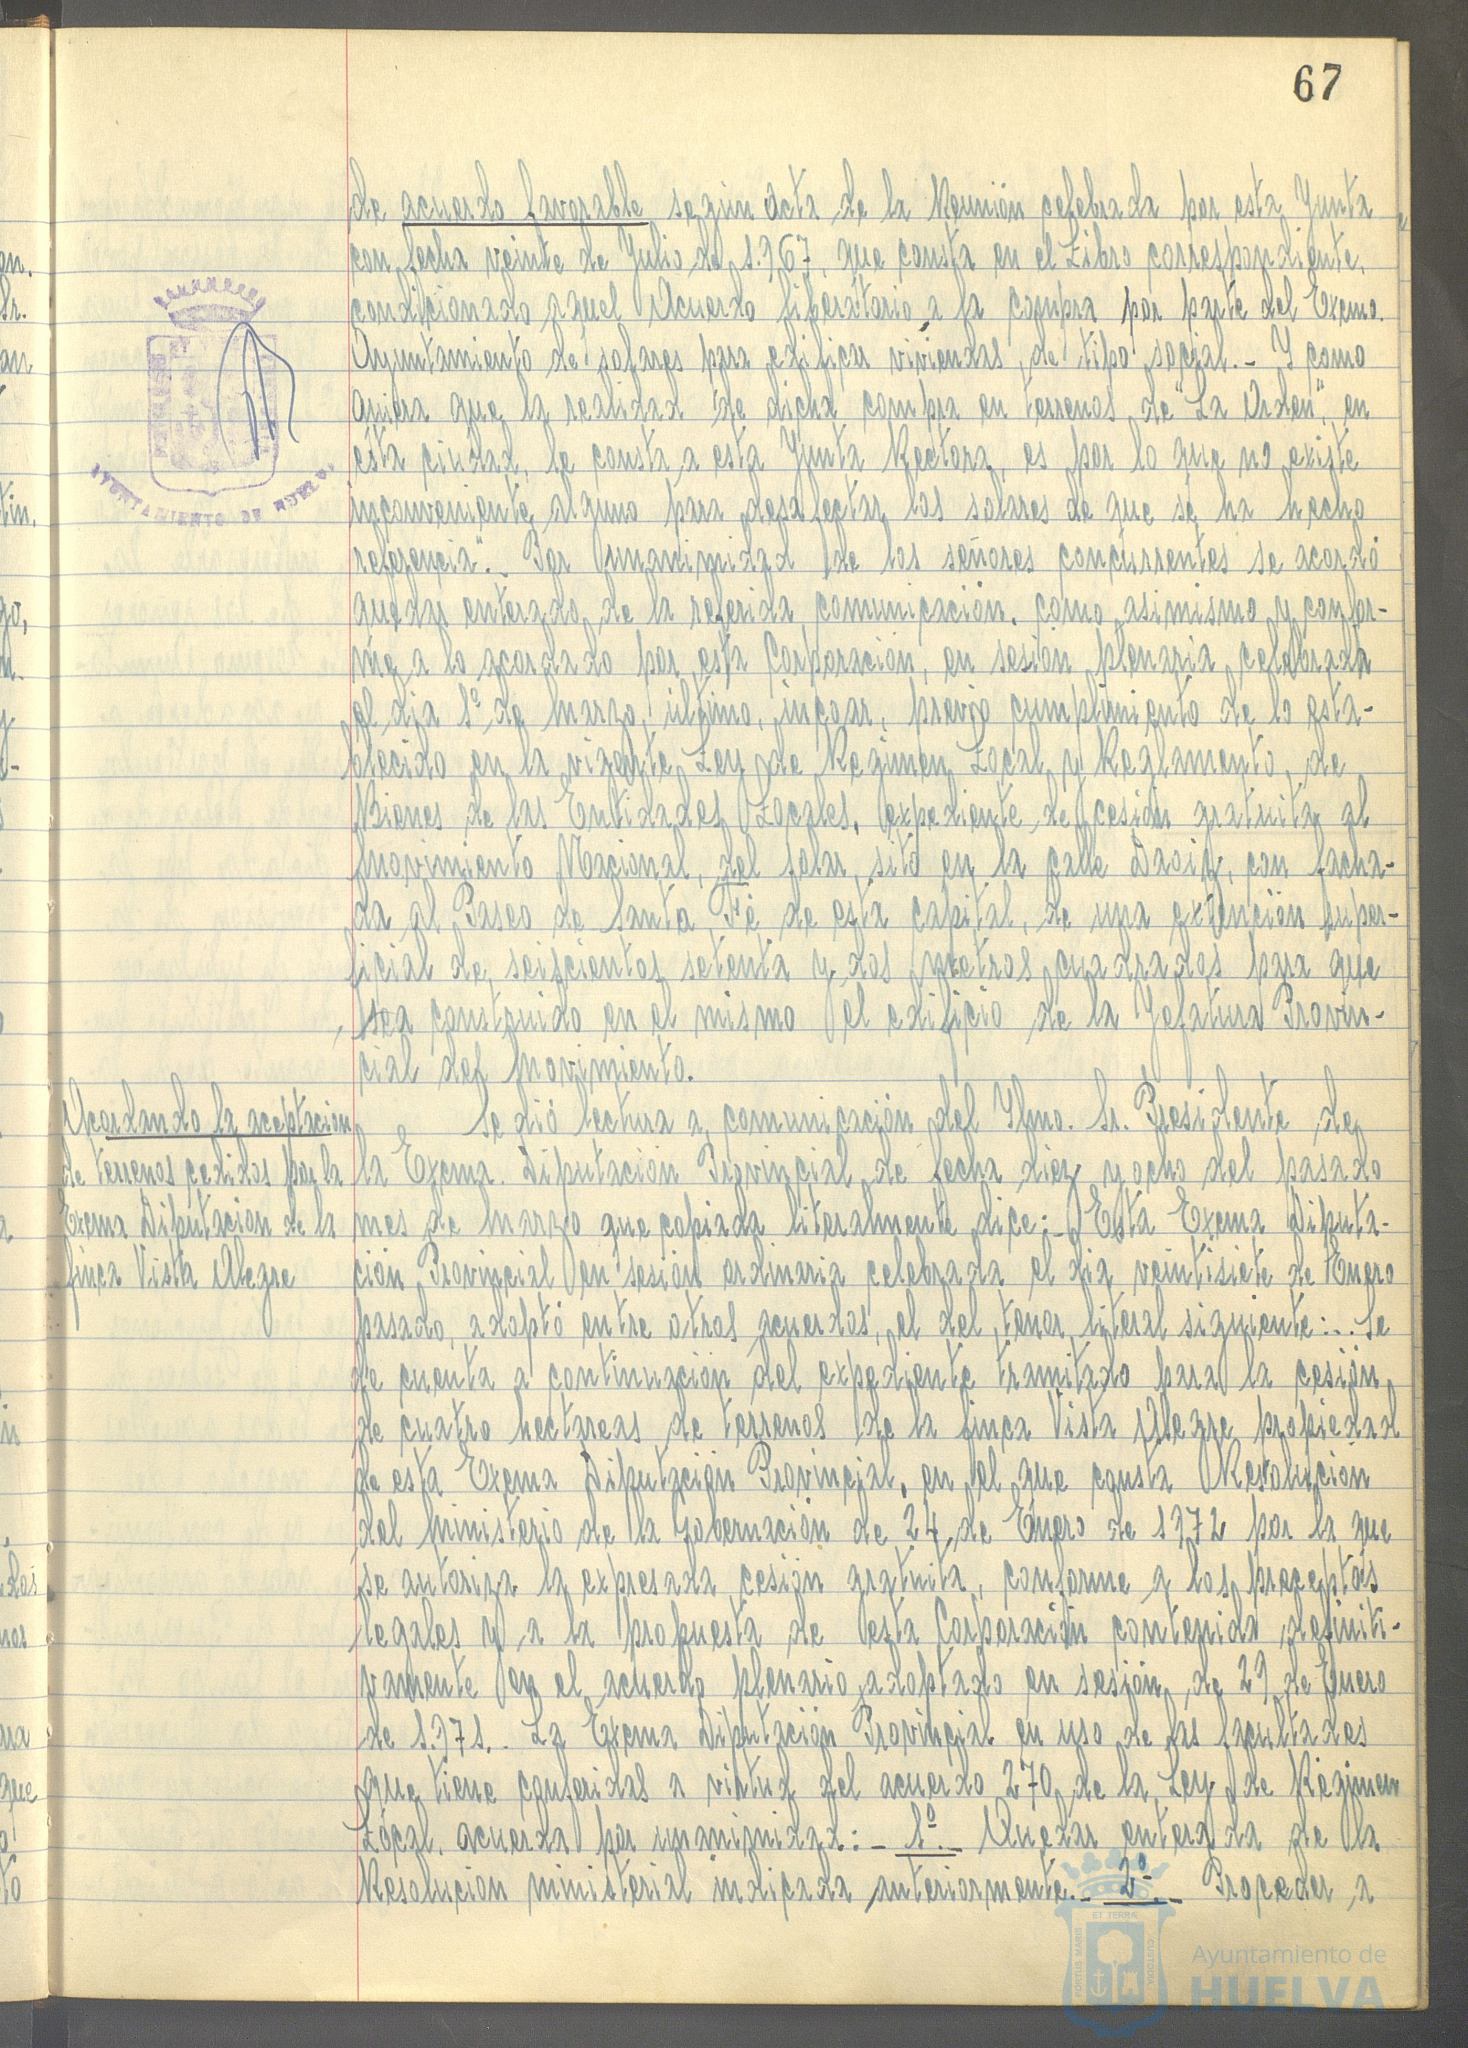 67
de acuerdo favorable según Acta de la Reunión celebrada por esta Junta
con fecha veinte de Julio de 1.967, que consta en el Libro correspondiente,
condicionado aquel Acuerdo liberatorio a la compra por parte del Excmo.
Ayuntamiento de solares para edificar viviendas de tipo social.- Y como
quiera que la realidad de dicha compra en terrenos de "La Orden", en
ésta ciudad, le consta a esta Junta Rectora, es por lo que no existe
inconveniente alguno para desafectar los solares de que se ha hecho
referencia".- Por unanimidad de los señores concurrentes se acordó
quedar enterado de la referida comunicación, como asimismo y confor-
me a lo acordado por esta Corporación, en sesión plenaria celebrada
el día 1º de Marzo, último, incoar, previo cumplimiento de lo esta-
blecido en la vigente Ley de Régimen Local y Reglamento de
Bienes de las Entidades Locales, expediente de cesión gratuita al
Movimiento Nacional, del solar sito en la calle Daoiz, con facha-
da al Paseo de Santa Fé de esta capital, de una extensión super-
ficial de seiscientos setenta y dos metros cuadrados para que
sea construido en el mismo el edificio de la Jefatura Provin-
cial del Movimiento.
AYUNTAMIENTO DE HUELVA
Acordando la aceptación
de terrenos cedidos por la
Excma Diputación de la
finca Vista Alegre
Se dió lectura a comunicación del Ylmo. Sr. Presidente de
la Excma. Diputación Provincial de fecha diez y ocho del pasado
mes de Marzo que copiada literalmente dice:- Esta Excma Diputa-
ción Provincial en sesión ordinaria celebrada el día veintisiete de Enero
pasado, adoptó entre otros acuerdos, el del tenor literal siguiente:.. Se
de cuenta a continuación del expediente tramitado para la cesión
de cuatro hectareas de terrenos de la finca Vista Alegre propiedad
de esta Excma Diputación Provincial, en el que consta Resolución
del Ministerio de la Gobernación de 24 de Enero de 1972 por la que
se autoriza la expresada cesión gratuita, conforme a los preceptos
legales y a la propuesta de esta Corporación contenida definiti-
vamente en el acuerdo plenario adoptado en sesión de 29 de Enero
de 1.971.- La Excma Diputación Provincial en uso de las facultades
que tiene conferidas a virtud del acuerdo 270 de la Ley de Régimen
Local, acuerda por unanimidad:- 1º.- Quedar enterada de la
Resolución ministerial indicada anteriormente.- 2º.- Proceder a
PORTUS MARIS ET TERRÆ CUSTODIA
Ayuntamiento de
HUELVA